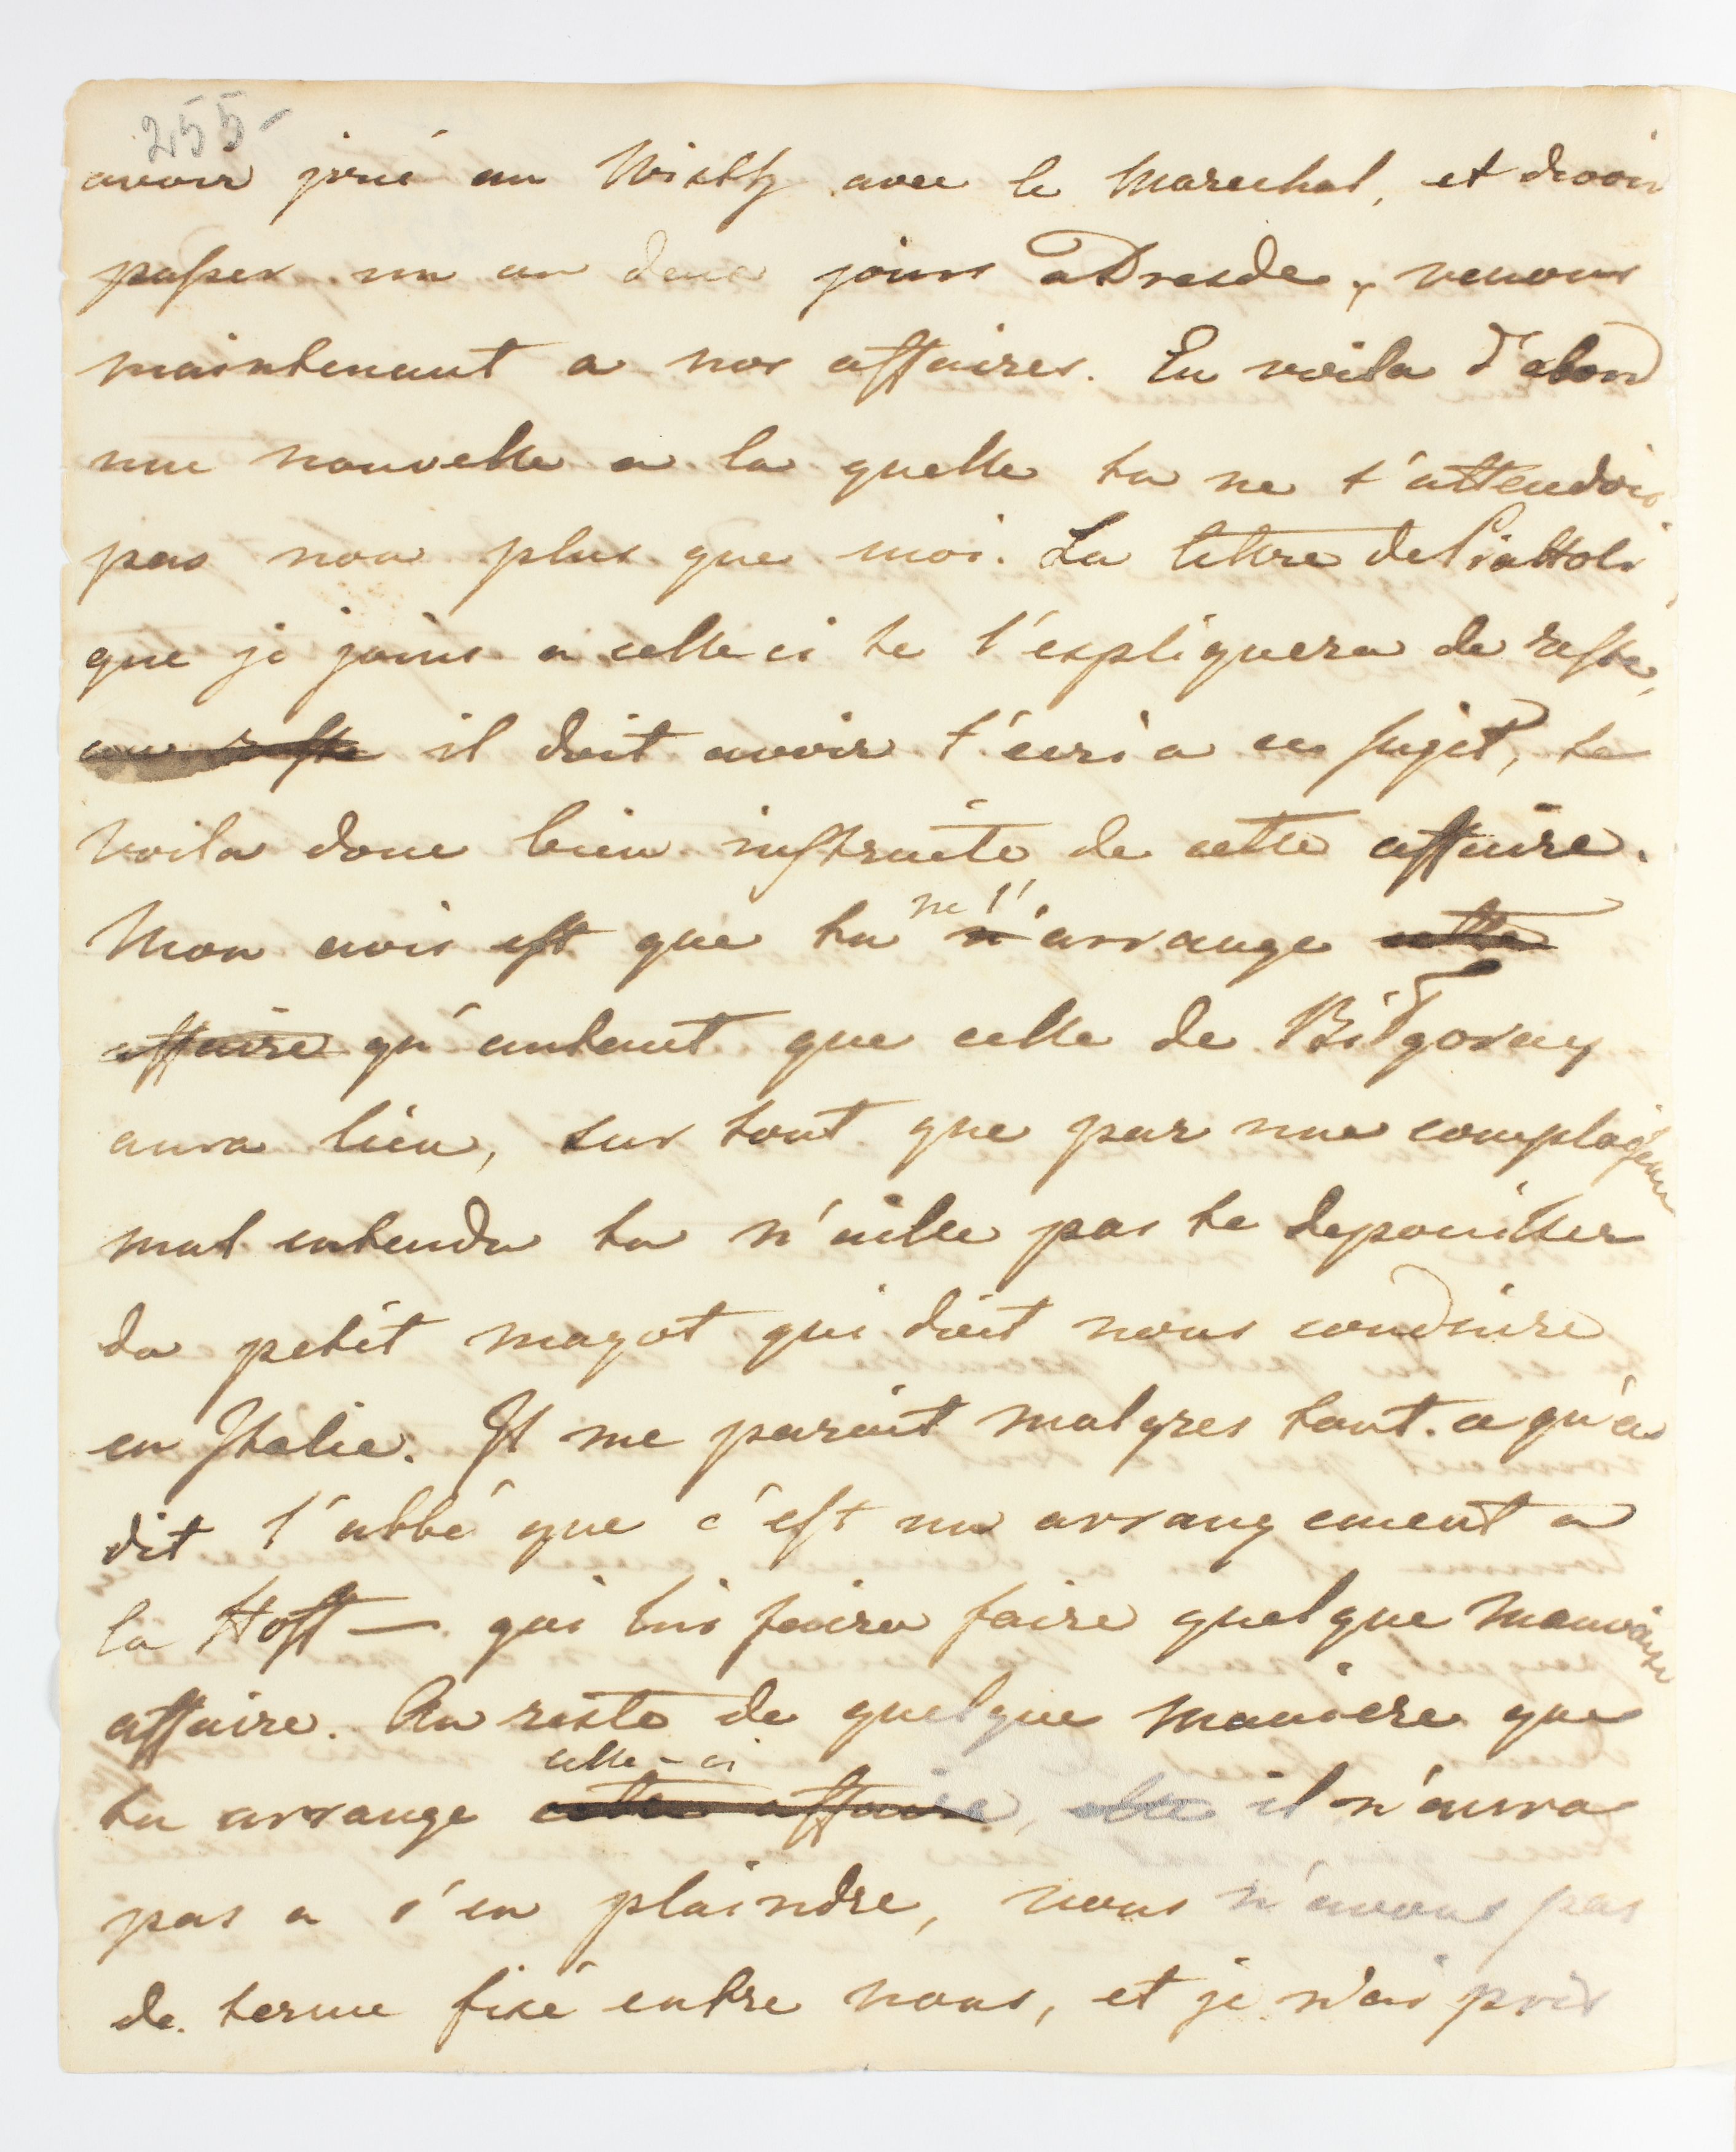 255
avoir joué au Wisth avec le Marechal, et devoir
passer un ou deux jours a Dresde, venons
maintenant a nos affaires. En voila d'abord
une nouvelle a la quelle tu ne t'attendois
pas non plus que moi. La lettre de Piattoli
que je joins a celle ci te l'expliquera de reste,
au reste il doit avoir t'ecri a ce sujet, te
voila donc bien instruite de cette affaire.
Mon avis est que tu ne l'arrange cette
affaire qu'autant que celle de Bilgoray
aura lieu, sur tout que par une complaisance
mal entendu tu n'aille pas te depouiller
du petit magot qui doit nous conduire
en Italie. Il me parait malgres tout ce qu'en
dit l'abbé que c'est un arrangement a
la Hoff — qui lui faira faire quelque mauvaise
affaire. Au reste de quelque maniere que
celle-ci
tu arrange cette affaire, elle il n'aura
pas a s'en plaindre, nous n'avons pas
de terme fixé entre nous, et je n'ai pris